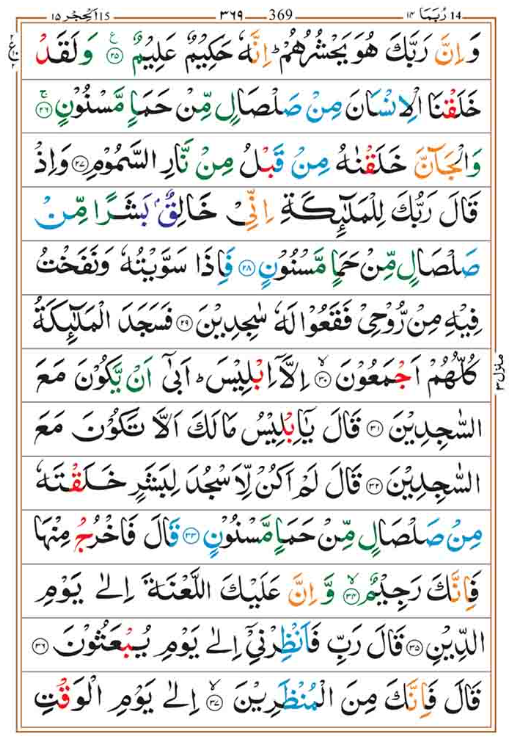 رُبَمَا ١٤ 14 ٣٦٩ 369 اَلْحِجْر ١٥ 15
وَاِنَّ رَبَّكَ هُوَ يَحْشُرُهُمْ ؕ اِنَّهٗ حَكِيْمٌ عَلِيْمٌ ﴿۲۵﴾ وَلَقَدْ
خَلَقْنَا الْاِنْسَانَ مِنْ صَلْصَالٍ مِّنْ حَمَاٍ مَّسْنُوْنٍ ﴿۲۶﴾
وَالْجَآنَّ خَلَقْنٰهُ مِنْ قَبْلُ مِنْ نَّارِ السَّمُوْمِ ﴿۲۷﴾ وَاِذْ
قَالَ رَبُّكَ لِلْمَلٰٓئِكَةِ اِنِّىْ خَالِقٌۢ بَشَرًا مِّنْ
صَلْصَالٍ مِّنْ حَمَاٍ مَّسْنُوْنٍ ﴿۲۸﴾ فَاِذَا سَوَّيْتُهٗ وَنَفَخْتُ
فِيْهِ مِنْ رُّوْحِىْ فَقَعُوْا لَهٗ سٰجِدِيْنَ ﴿۲۹﴾ فَسَجَدَ الْمَلٰٓئِكَةُ
كُلُّهُمْ اَجْمَعُوْنَ ۙ ﴿۳۰﴾ اِلَّاۤ اِبْلِيْسَ ؕ اَبٰٓى اَنْ يَّكُوْنَ مَعَ
السّٰجِدِيْنَ ﴿۳۱﴾ قَالَ يٰۤاِبْلِيْسُ مَا لَكَ اَلَّا تَكُوْنَ مَعَ
السّٰجِدِيْنَ ﴿۳۲﴾ قَالَ لَمْ اَكُنْ لِّاَسْجُدَ لِبَشَرٍ خَلَقْتَهٗ
مِنْ صَلْصَالٍ مِّنْ حَمَاٍ مَّسْنُوْنٍ ﴿۳۳﴾ قَالَ فَاخْرُجْ مِنْهَا
فَاِنَّكَ رَجِيْمٌ ۙ ﴿۳۴﴾ وَّاِنَّ عَلَيْكَ اللَّعْنَةَ اِلٰى يَوْمِ
الدِّيْنِ ﴿۳۵﴾ قَالَ رَبِّ فَاَنْظِرْنِىْۤ اِلٰى يَوْمِ يُبْعَثُوْنَ ﴿۳۶﴾
قَالَ فَاِنَّكَ مِنَ الْمُنْظَرِيْنَ ۙ ﴿۳۷﴾ اِلٰى يَوْمِ الْوَقْتِ
منزل ٣